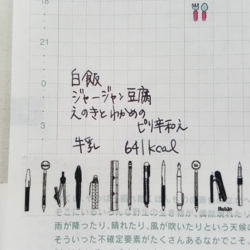 18
白飯
ジャージャン豆腐
えのきとわかめの
ピリ辛和え
牛乳 641kcal
雨が降ったり、晴れたり、風が吹いたりという天気
そういった不確定要素がたくさんあるなかでこ